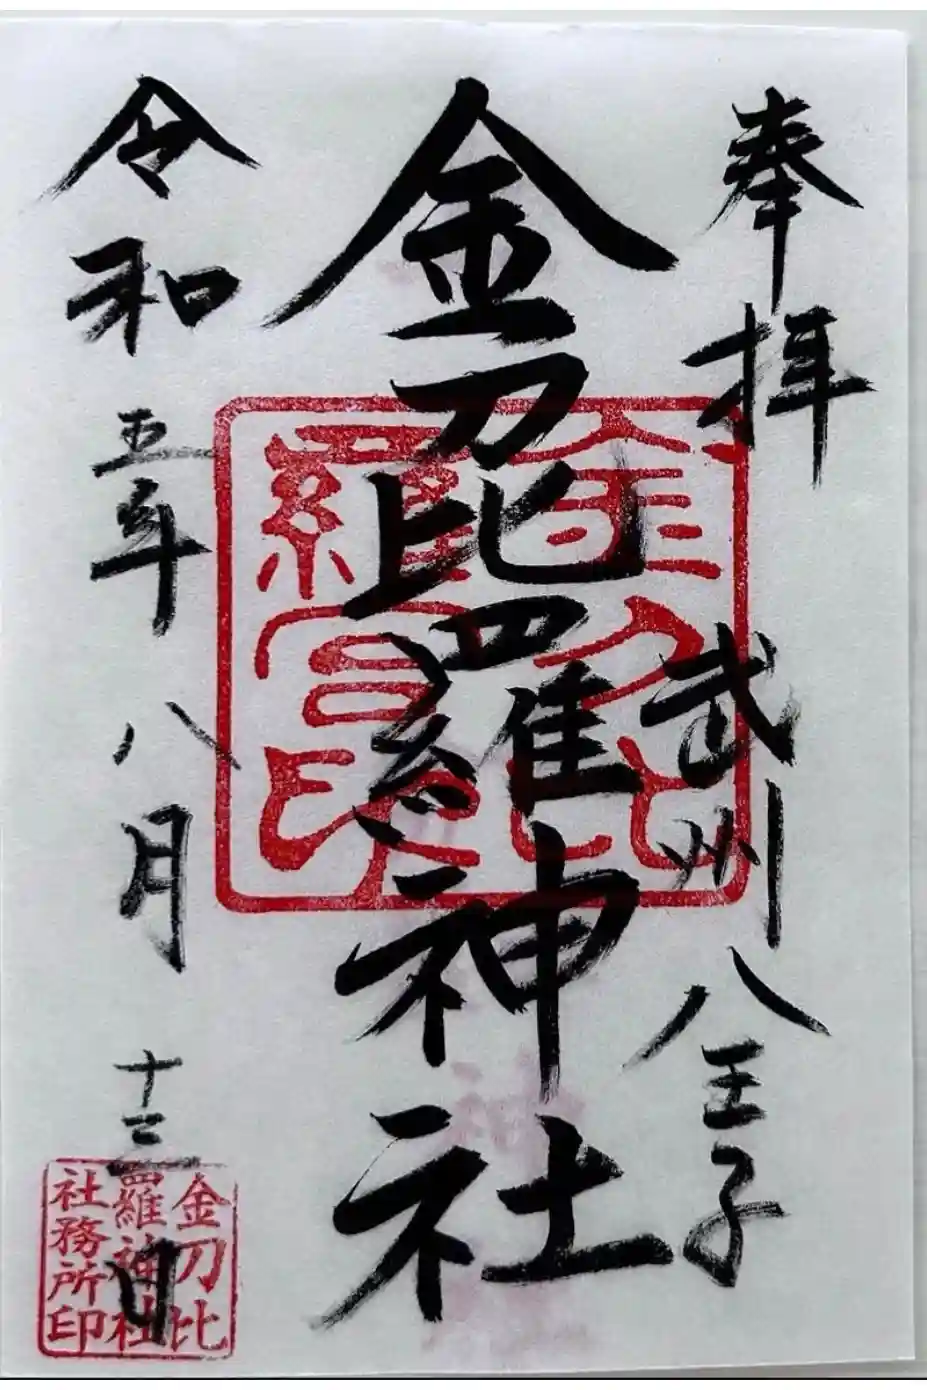 奉拝
武州八王子
金刀比羅神社
令和五年八月十三日
金刀比
羅宮印
金刀比
羅神社
社務所印